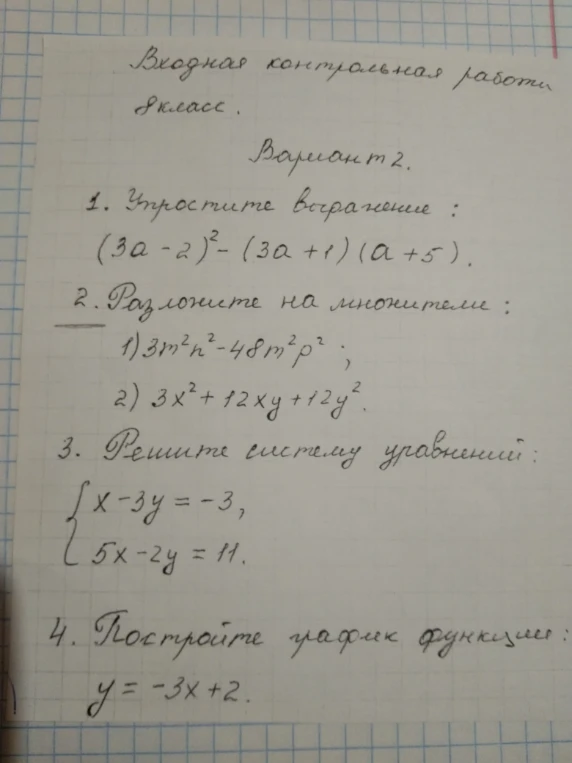 Входная контрольная работа
8 класс.
Вариант 2.
1. Упростите выражение :
(3a - 2)² - (3a + 1) (a + 5).
2. Разложите на множители :
1) 3m²n² - 48m²p² ;
2) 3x² + 12xy + 12y².
3. Решите систему уравнений :
{ x - 3y = -3,
5x - 2y = 11.
4. Постройте график функции :
y = -3x + 2.